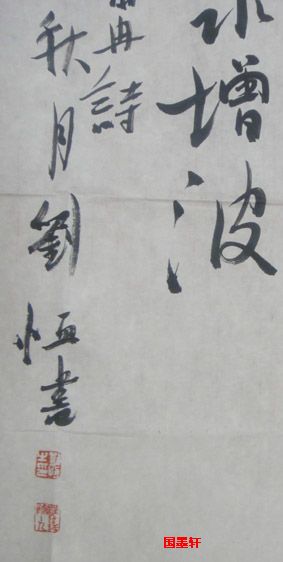 水增波
冉詩
秋月劉恒書
国墨轩